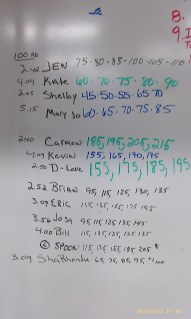 8.
9.
100 Rd
2:42 JEN 75-80-85-100-105-110
4:09 Kate 60-70-75-80-90
2:05 Shelby 45-50-55-65-70
5:15 Mary Jo 60-65-70-75-85
2:40 Carmow 185,195,205,215
4:09 Kevin 155, 165, 190, 195
2:50 D-Love 155, 175, 185, 195
2:52 Brian 95, 115, 125, 130, 135
3:09 Eric 115, 135, 155, 175, 195
3:56 Josh 95, 115, 125, 135, 145
4:00 Bill 115, 125, 125, 135, 135
SPOON 115, 135, 155, 185, 205
3:09 65, 75, 85, 95, 100